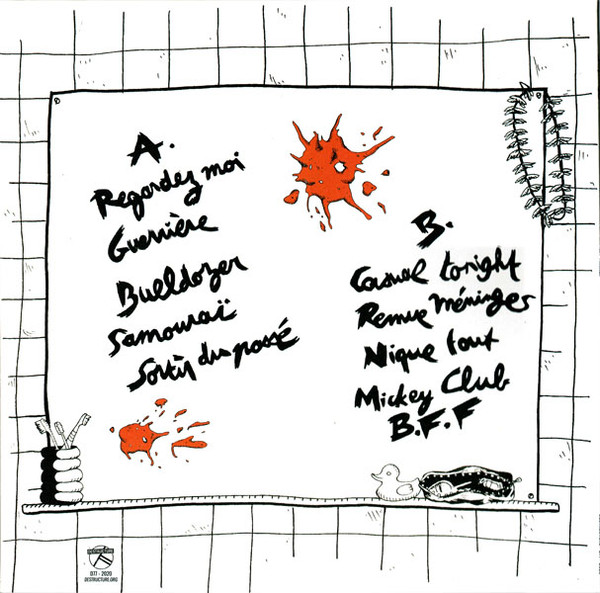 A.
Regardez moi
Guerrière
Bulldozer
Samouraï
Sortir du passé
B.
Casual tonight
Remue méninges
Nique tout
Mickey Club
B.F.F
DESTRUCTURE
077 - 2020
DESTRUCTURE.ORG